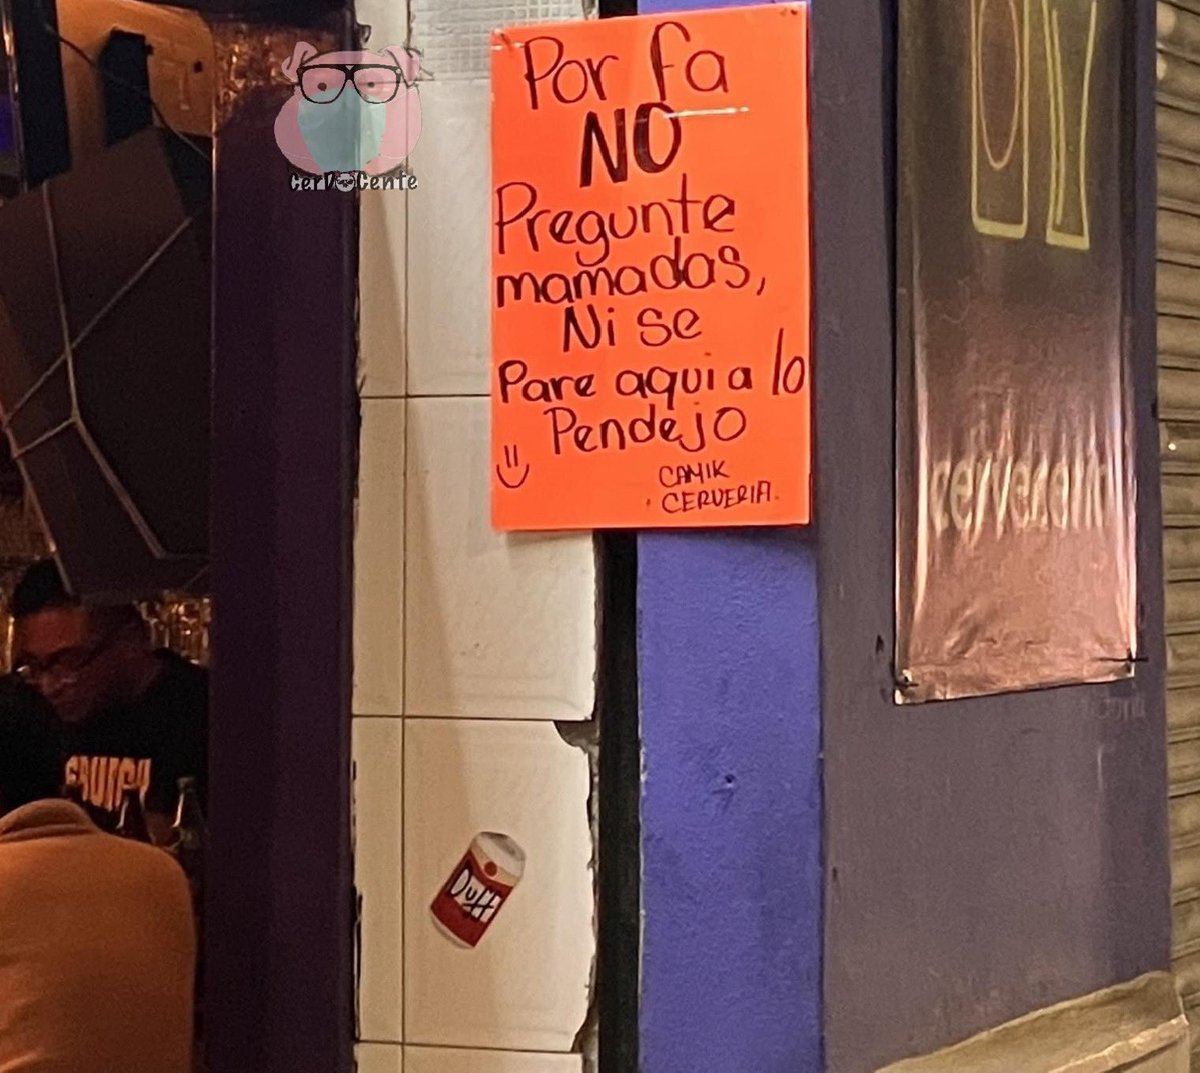 Por fa
NO
Pregunte
mamadas,
Ni se
Pare aqui a lo
Pendejo
CAMIK
CERVERIA.
CerDocente
cervecería
Duff